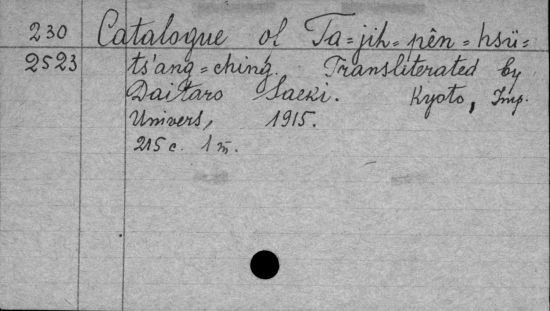 230 Catalogue of Ta=jih=pên=hsü=
2523 ts'ang=ching. Transliterated by
Daitaro Saeki. Kyoto, Imp.
Univers, 1915.
215 c. 1 m.